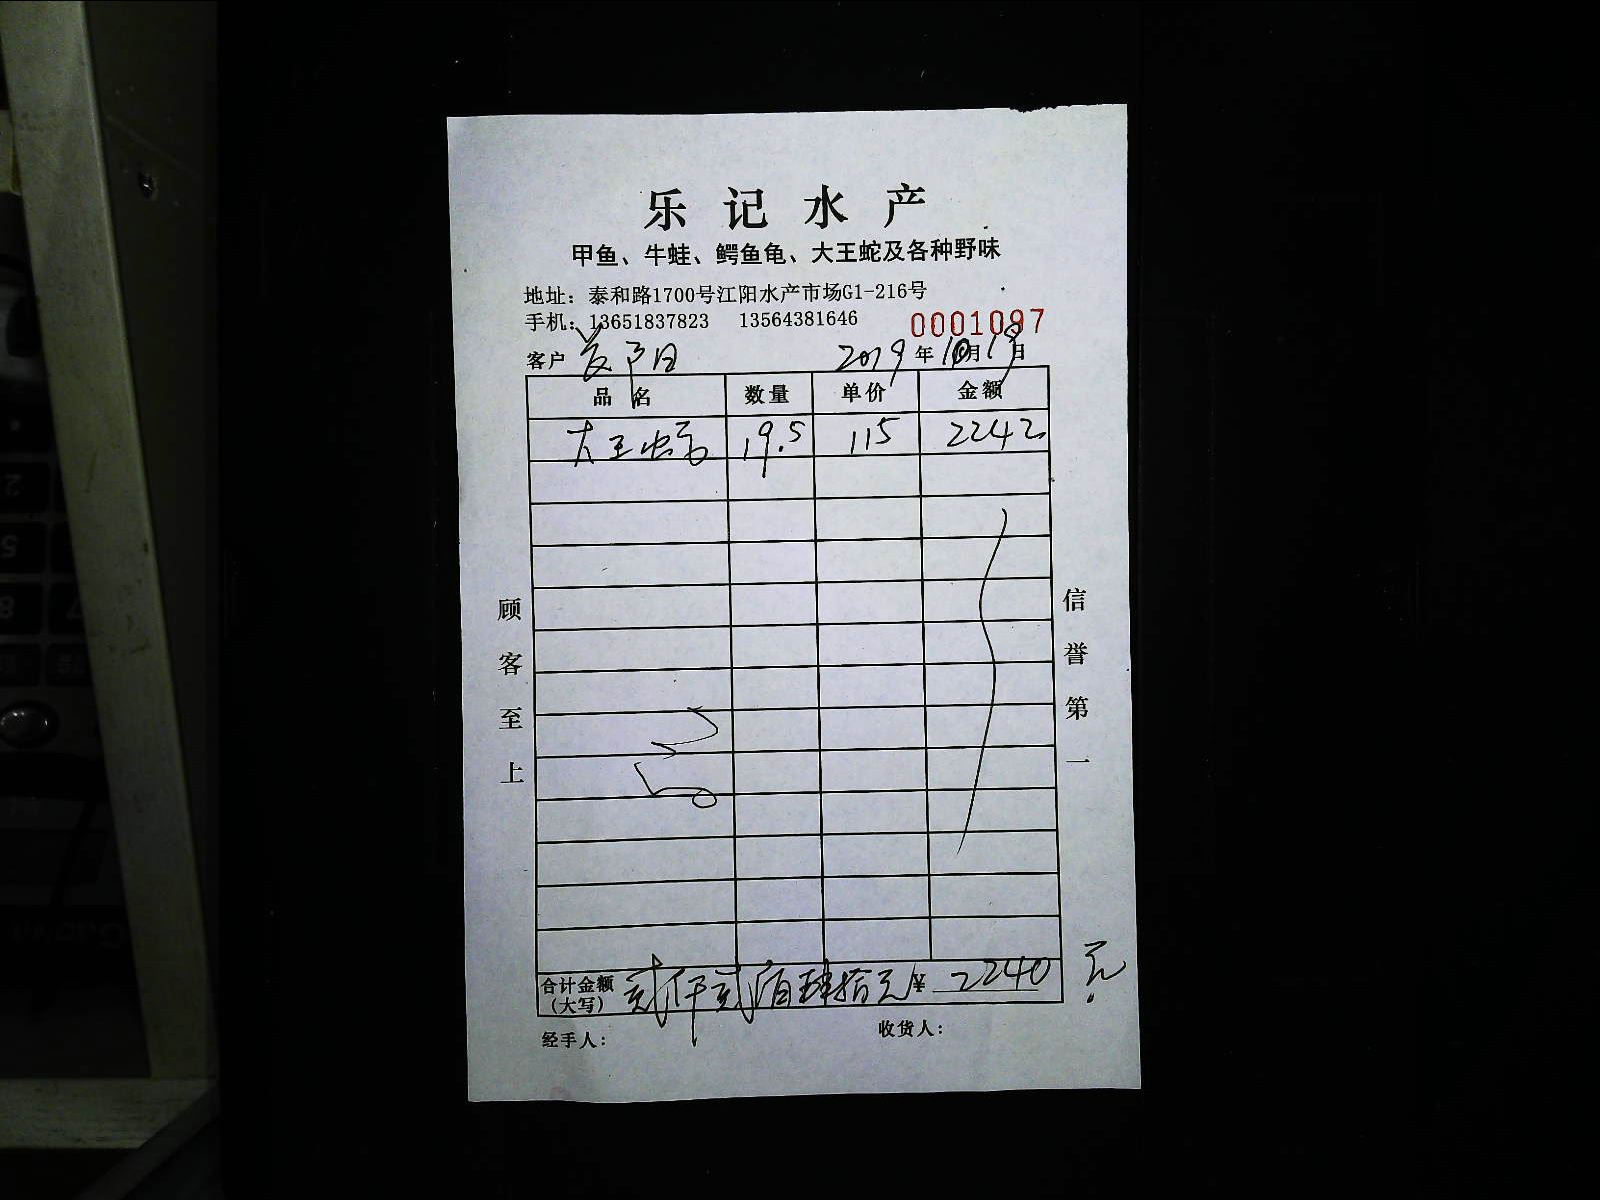 乐记水产
甲鱼、牛蛙、鳄鱼龟、大王蛇及各种野味
地址：泰和路1700号江阳水产市场G1-216号
手机：13651837823 13564381646
0001097
客户 2019年10月19日
品名 数量 单价 金额
大王蛇 19.5 115 2242
顾客至上
信誉第一
合计金额（大写） 贰仟贰佰肆拾元 ¥ 2240 元
经手人： 收货人：